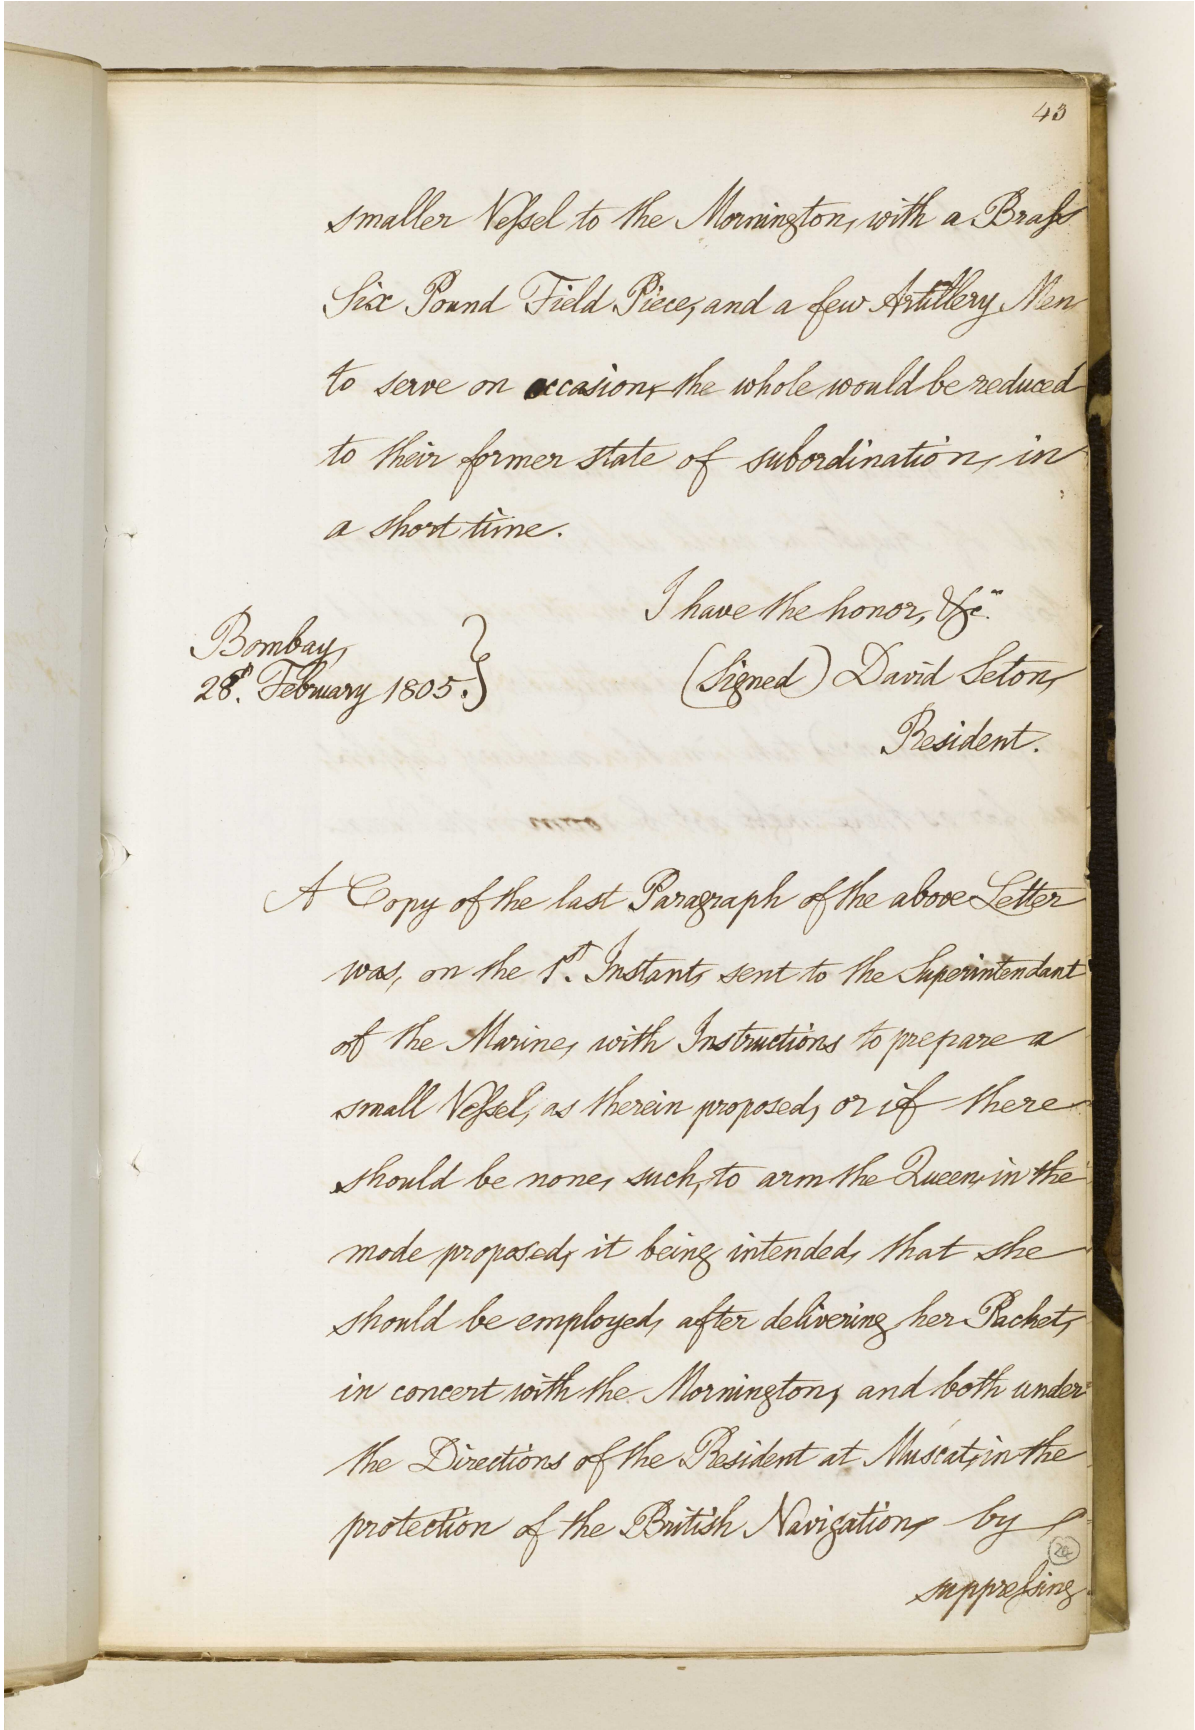 43
smaller Vessel to the Mornington, with a Brass
Six Pound Field Piece, and a few Artillery Men
to serve on occasion, the whole would be reduced
to their former state of subordination, in
a short time.
I have the honor, &c.
Bombay,
28th. February 1805.}
(Signed) David Seton,
Resident.
A Copy of the last Paragraph of the above Letter
was, on the 1st. Instant, sent to the Superintendant
of the Marine, with Instructions to prepare a
small Vessel, as therein proposed, or if there
should be none, such, to arm the Queen, in the
mode proposed, it being intended, that she
should be employed, after delivering her Packet,
in concert with the Mornington, and both under
the Directions of the Resident at Muscat, in the
protection of the British Navigation, by
suppressing